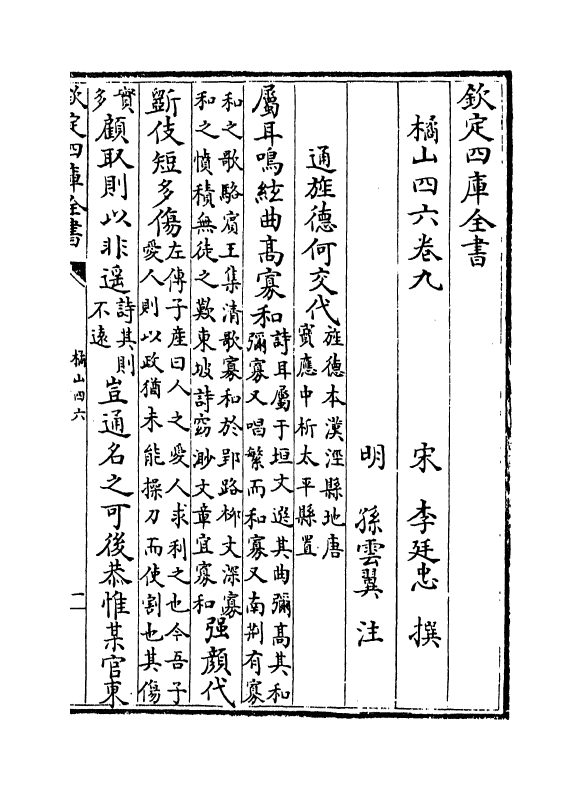 欽定四庫全書
橘山四六卷九 宋 李廷忠 撰
明 孫雲翼 注
通旌德何交代
旌德本漢涇縣地唐
寳應中析太平縣置
屬耳鳴絃曲髙寡和
詩耳屬于垣文選其曲彌髙其和
彌寡又唱繁而和寡又南荆有寡
和之歌駱賔王集清歌寡和於郢路柳文深寡
和之憤積無徒之歎東坡詩窈渺文章宜寡和
强顔代
斵伎短多傷
左傳子産曰人之愛人求利之也今吾子
愛人則以政猶未能操刀而使割也其傷
實
多
顧取則以非遥
詩其則
不遠
豈通名之可後恭惟某官東
欽定四庫全書
橘山四六